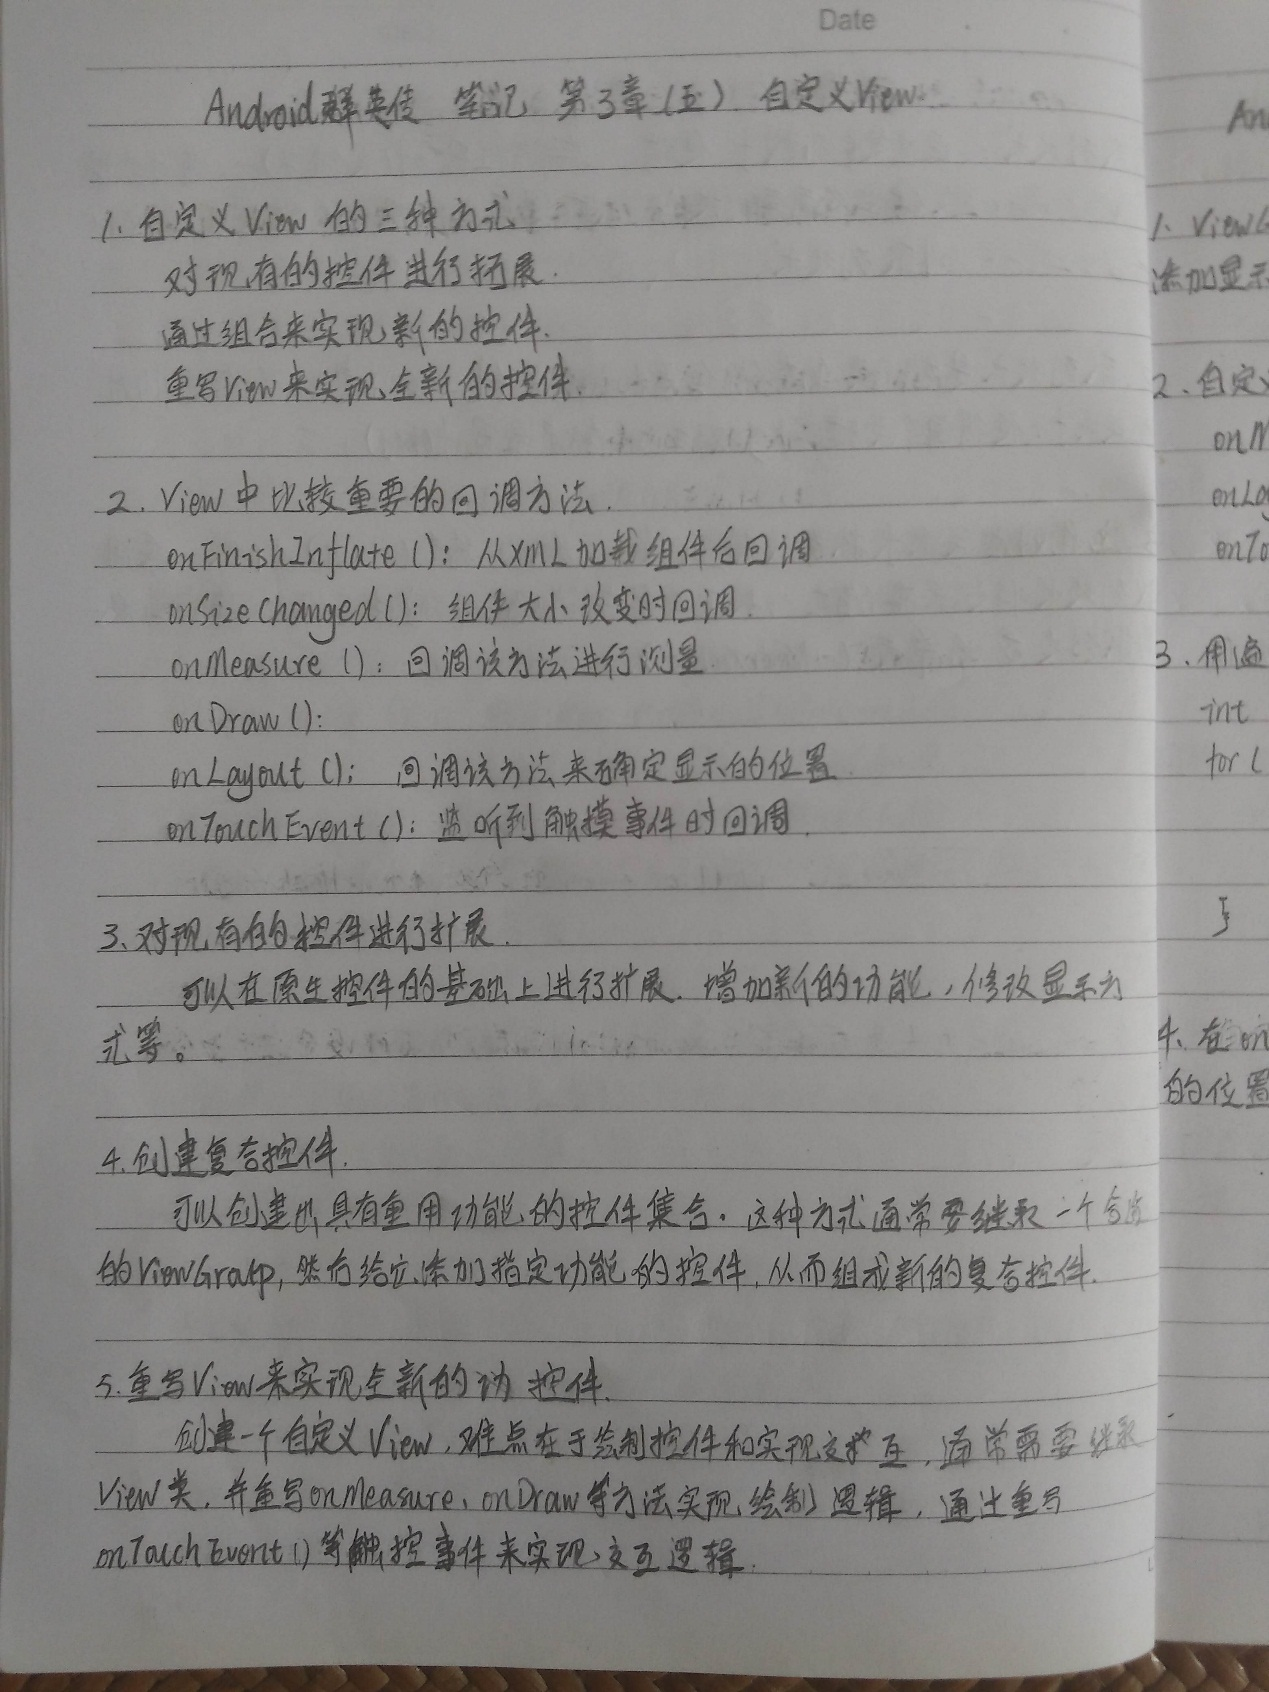 Date
Android群英传 笔记 第3章(五) 自定义View
1. 自定义View的三种方式
对现有的控件进行拓展.
通过组合来实现新的控件.
重写View来实现全新的控件.
2. View中比较重要的回调方法.
onFinishInflate(): 从XML加载组件后回调
onSizeChanged(): 组件大小改变时回调.
onMeasure(): 回调该方法进行测量
onDraw():
onLayout(): 回调该方法来确定显示的位置
onTouchEvent(): 监听到触摸事件时回调.
3、对现有的控件进行扩展.
可以在原生控件的基础上进行扩展. 增加新的功能, 修改显示方
式等。
4. 创建复合控件.
可以创建出具有重用功能的控件集合. 这种方式通常要继承一个合适
的ViewGroup, 然后给它添加指定功能的控件, 从而组成新的复合控件.
5. 重写View来实现全新的控件.
创建一个自定义View, 难点在于绘制控件和实现交互, 通常需要继承
View类, 并重写onMeasure、onDraw等方法实现绘制逻辑, 通过重写
onTouchEvent()等触控事件来实现交互逻辑.
An
1、View
添加显示
2、自定义
onM
onLay
onTo
3、用遍
int
for(
}
4、在on
的位置